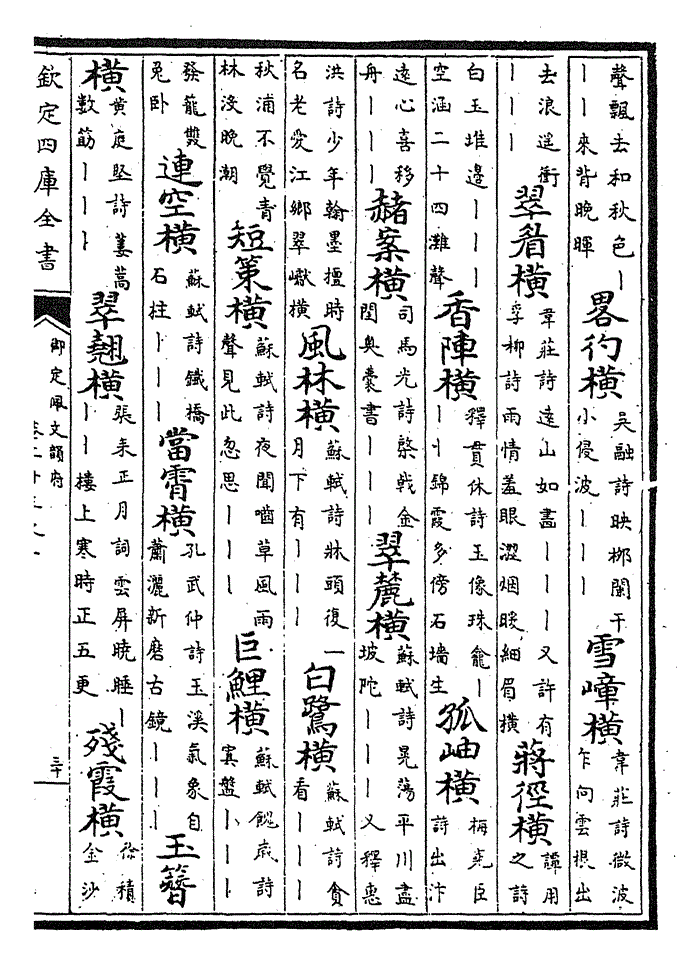 聲飄去和秋色丨
丨丨來背晚暉
畧彴橫
吳融詩映栁闌干
小侵波丨丨丨
雪嶂橫
韋莊詩微波
乍向雲根出
去浪遥衝
丨丨丨
翠眉橫
韋莊詩遠山如畫丨丨丨又許有
孚柳詩雨情羞眼澀烟暖細眉橫
蔣徑橫
譚用
之詩
白玉堆邊丨丨丨
空涵二十四灘聲
香陣橫
釋貫休詩玉像珠龕丨
丨丨錦霞多傍石墻生
孤岫橫
梅堯臣
詩出汴
遠心喜移
舟丨丨丨
赭案橫
司馬光詩棨戟金
閨奥囊書丨丨丨
翠麓橫
蘇軾詩晃蕩平川盡
坡陀丨丨丨又釋惠
洪詩少年翰墨擅時
名老愛江鄉翠嶽橫
風林橫
蘇軾詩牀頭復一
月下有丨丨丨
白鷺橫
蘇軾詩貪
看丨丨丨
秋浦不覺青
林沒晚潮
短策橫
蘇軾詩夜聞嚙草風雨
聲見此忽思丨丨丨
巨鯉橫
蘇軾餽歲詩
寘盤丨丨丨
發籠雙
兎卧
連空橫
蘇軾詩鐵橋
石柱丨丨丨
當霄橫
孔武仲詩玉溪氣象自
蕭灑新磨古鏡丨丨丨
玉簪
橫
黃庭堅詩蔞蒿
數筯丨丨丨
翠翹橫
張耒正月詞雲屏曉睡丨
丨丨樓上寒時正五更
殘霞橫
徐積
金沙
欽定四庫全書
御定佩文韻府
卷二十三之一
三十